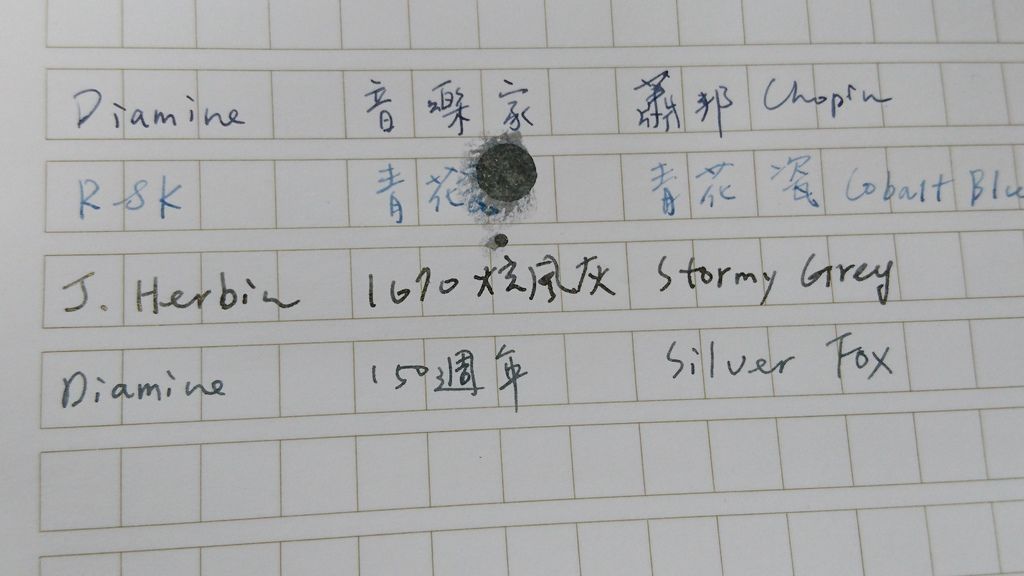 Diamine 音樂家 蕭邦 Chopin
R&K 青花 青花瓷 Cobalt Blue
J. Herbin 1670 炫風灰 Stormy Grey
Diamine 150週年 Silver Fox